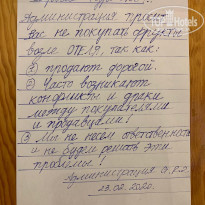 Администрация просит
Вас не покупать фрукты
возле ОТЕЛЯ, так как:
① продают дорогой.
② Часто возникают
конфликты и драки
между покупателями
и продавцами!
③ Мы не несем ответственность
и не будем решать эти
проблемы!
Администрация
23.02.2020.